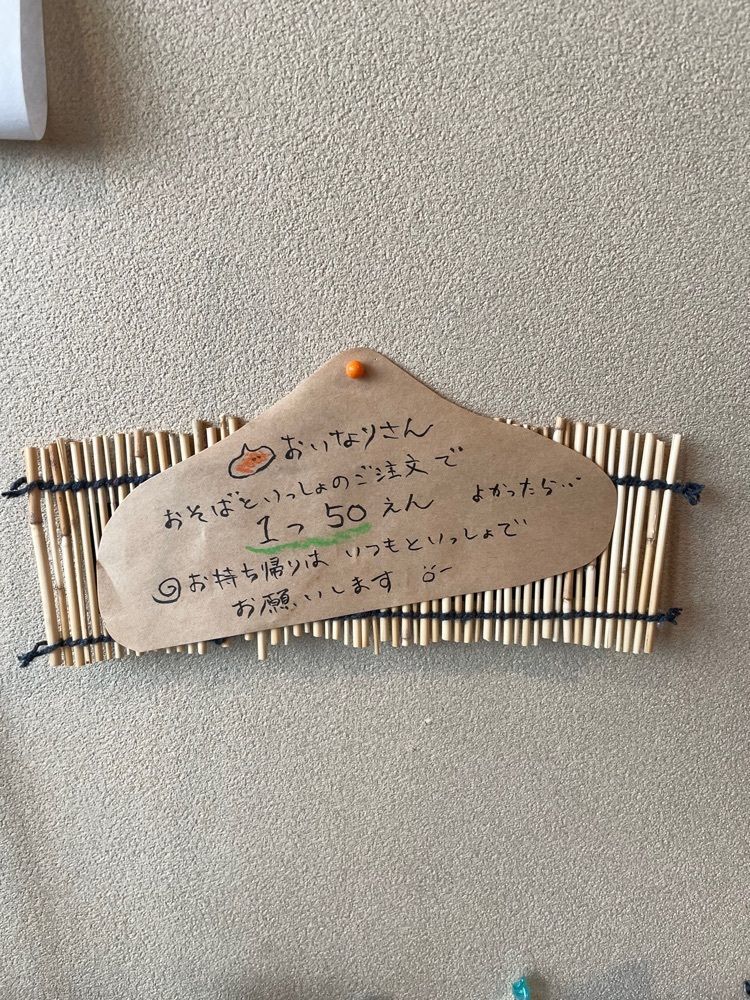 おいなりさん
おそばといっしょのご注文で
1つ 50えん よかったら…
お持ち帰りは いつもといっしょで
お願いします